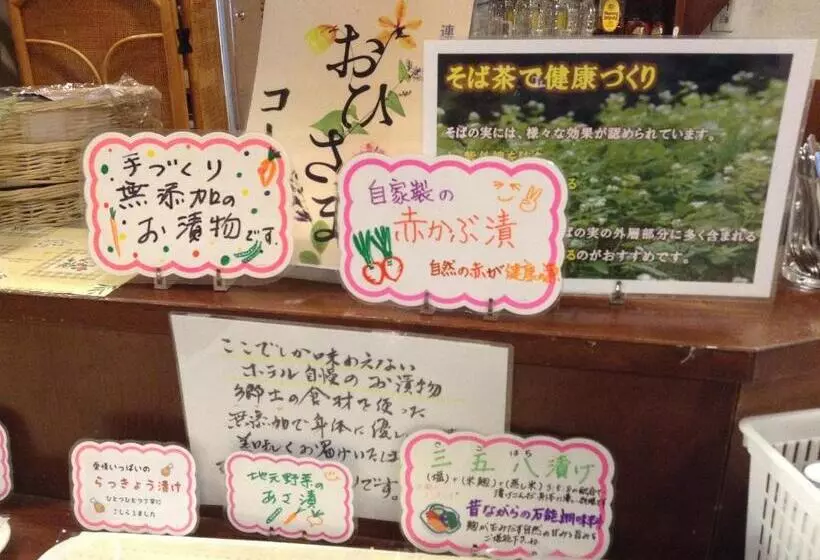 連
おひさま
コー
そば茶で健康づくり
そばの実には、様々な効果が認められています。
る
ばの実の外層部分に多く含まれる
るのがおすすめです。
手づくり
無添加の
お漬物です。
自家製の
赤かぶ漬
自然の赤が健康の源
ここでしか味わえない
ホテル自慢のお漬物
郷土の食材を使った
無添加で身体に優し
美味しくお届けいたしま
です。
愛情いっぱいの
らっきょう漬け
ひとつひとつ丁寧に
こしらえました
地元野菜の
あさ漬
三五八漬け
(塩)+(米麹)+(蒸し米)
昔ながらの
麹が生みだす自然の甘みと旨みを